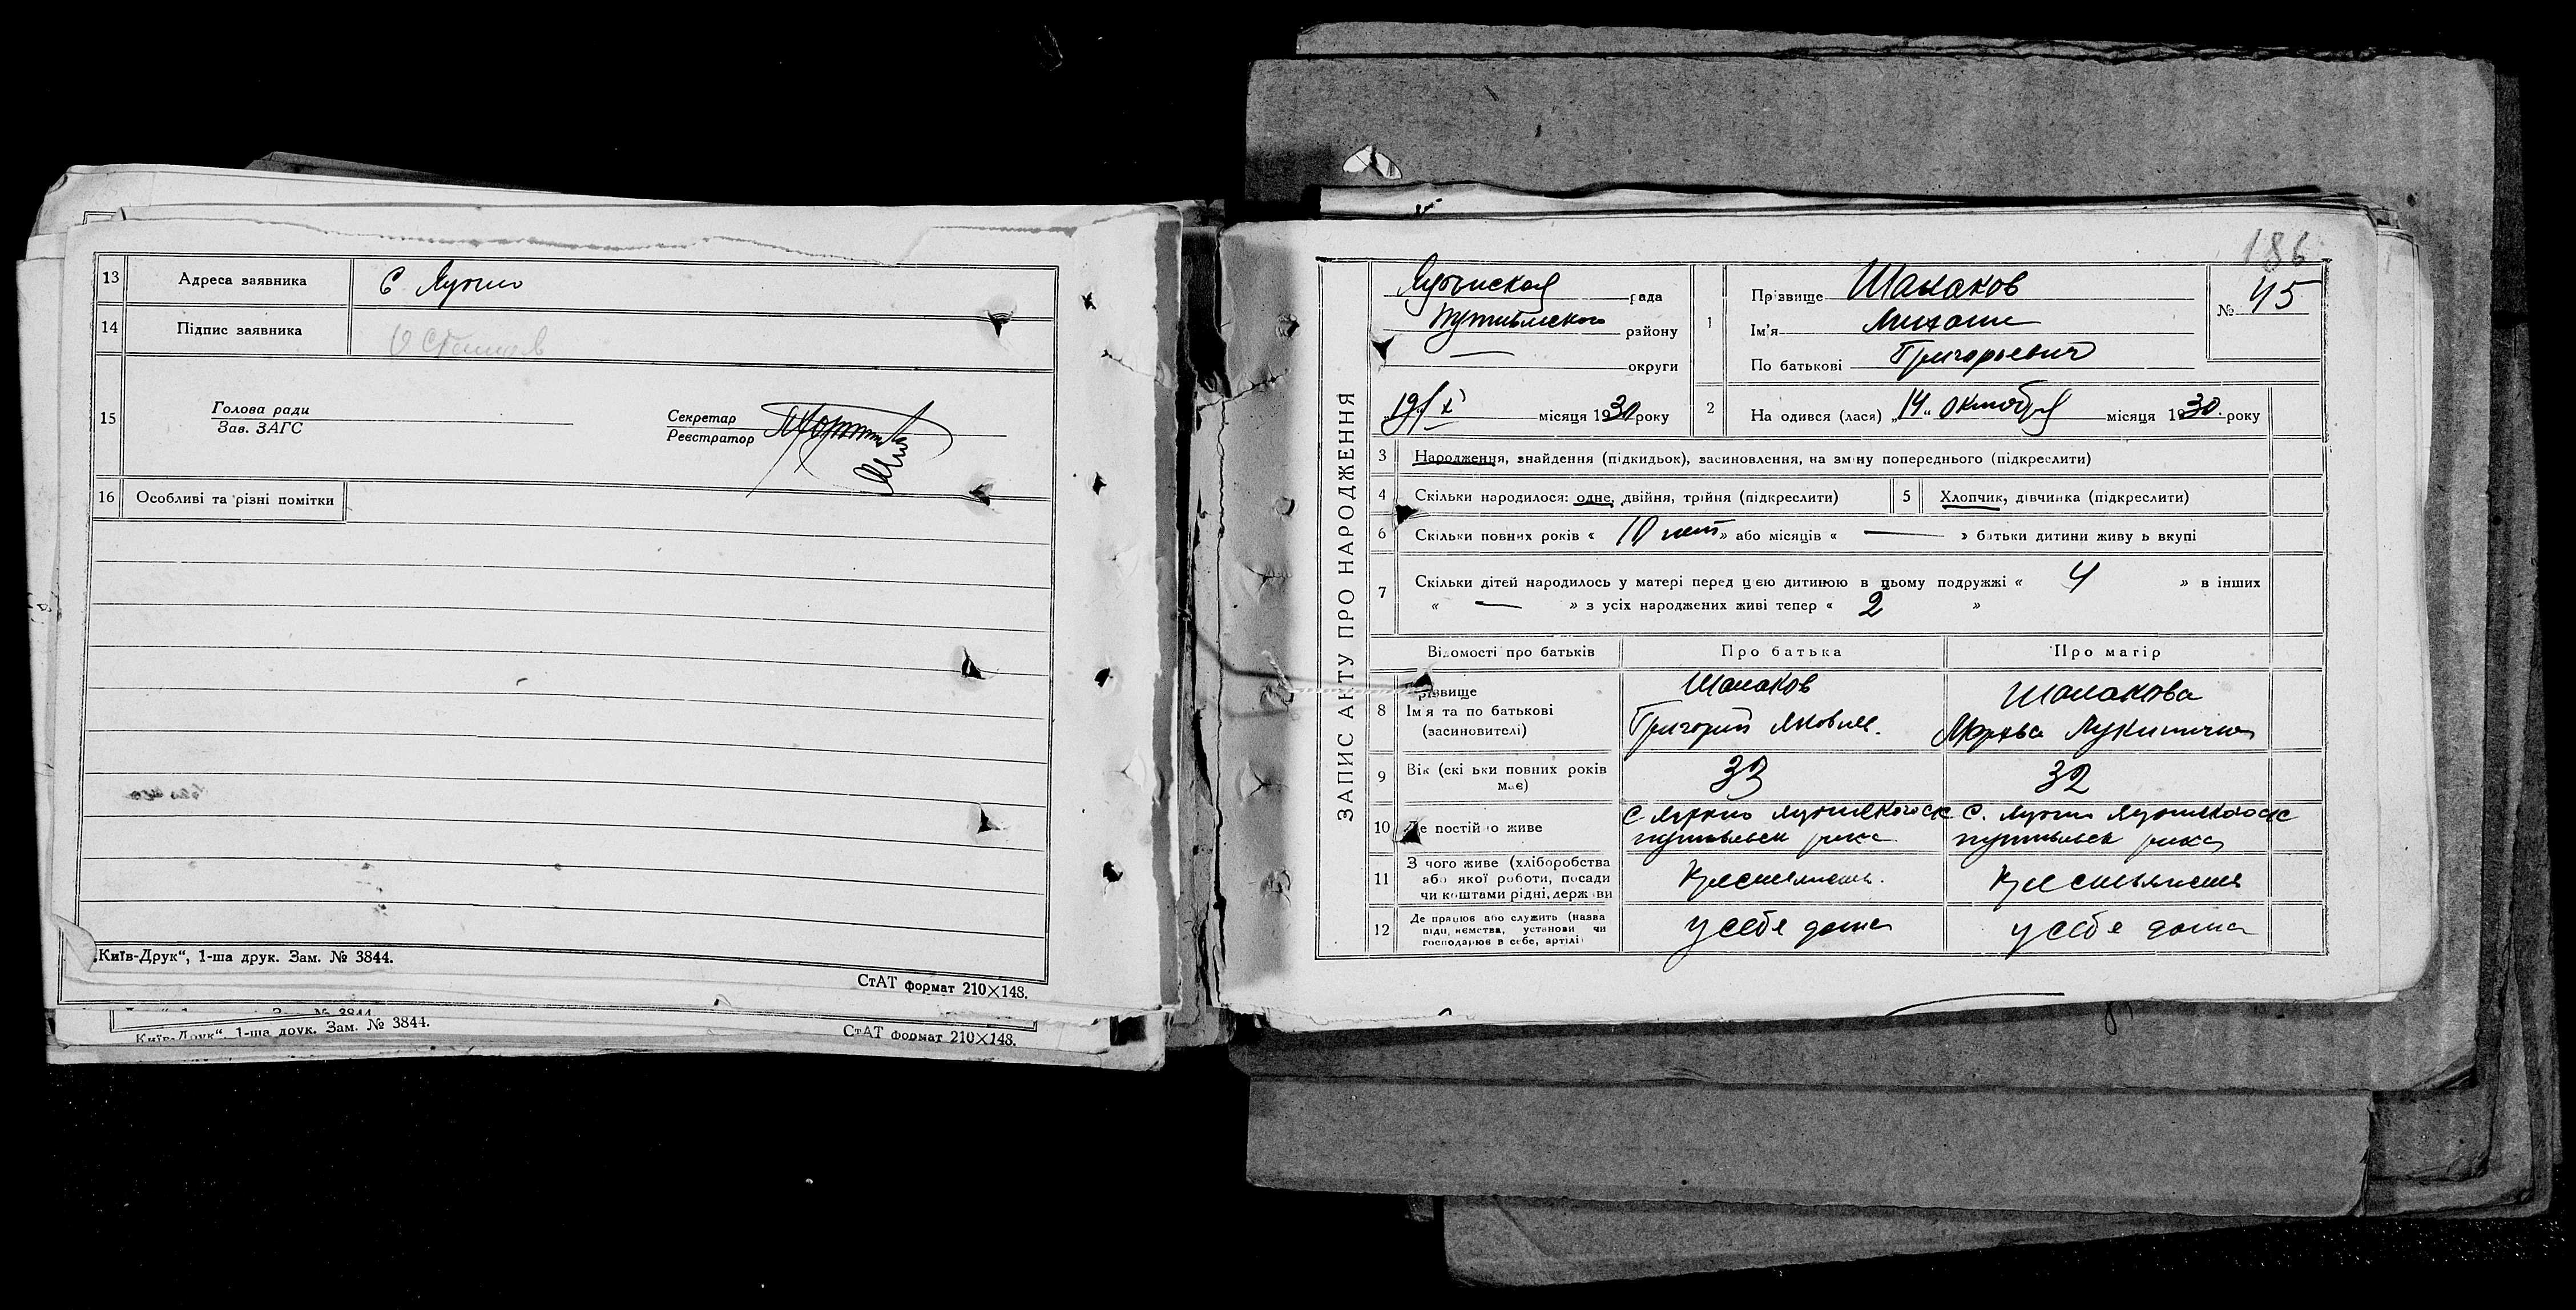 13 Адреса заявника С
14 Підпис заявника
15 Голова ради
Зав. ЗАГС
Секретар
Реєстратор
16 Особливі та різні помітки
„Київ-Друк“, 1-ша друк. Зам. № 3844.
СтАТ формат 210×148.
Київ-Друк“, 1-ша друк. Зам. № 3844.
СтАТ формат 210×148.
186
ЗАПИС АКТУ ПРО НАРОДЖЕННЯ
рада
Путивльского району
— округи
19/XI місяця 1930 року
1 Прізвище Шалаков
Ім'я Михаил
По батькові Григорьевич
№ 45
2 На одився (лася) „14“ октября місяця 1930. року
3 Народження, знайдення (підкидьок), засиновлення, на зміну попереднього (підкреслити)
4 Скільки народилося: одне, двійня, трійня (підкреслити)
5 Хлопчик, дівчинка (підкреслити)
6 Скільки повних років « 10 лет » або місяців « — » батьки дитини живу ь вкупі
7 Скільки дітей народилось у матері перед цією дитиною в цьому подружжі « 4 » в інших
« — » з усіх народжених живі тепер « 2 »
Відомості про батьків Про батька Про матір
8 різвище
Ім'я та по батькові
(засиновителі)
Шалаков
Григорий Яковл.
Шалакова
Марфа Лукинична
9 Вік (скі ьки повних років має) 33 32
10 Де постійно живе
11 З чого живе (хліборобства
або якої роботи, посади
чи коштами рідні, держ ви
12 Де працює або служить (назва
підприємства, установи чи
господарює в себе, артілі)
у себе дома у себе дома